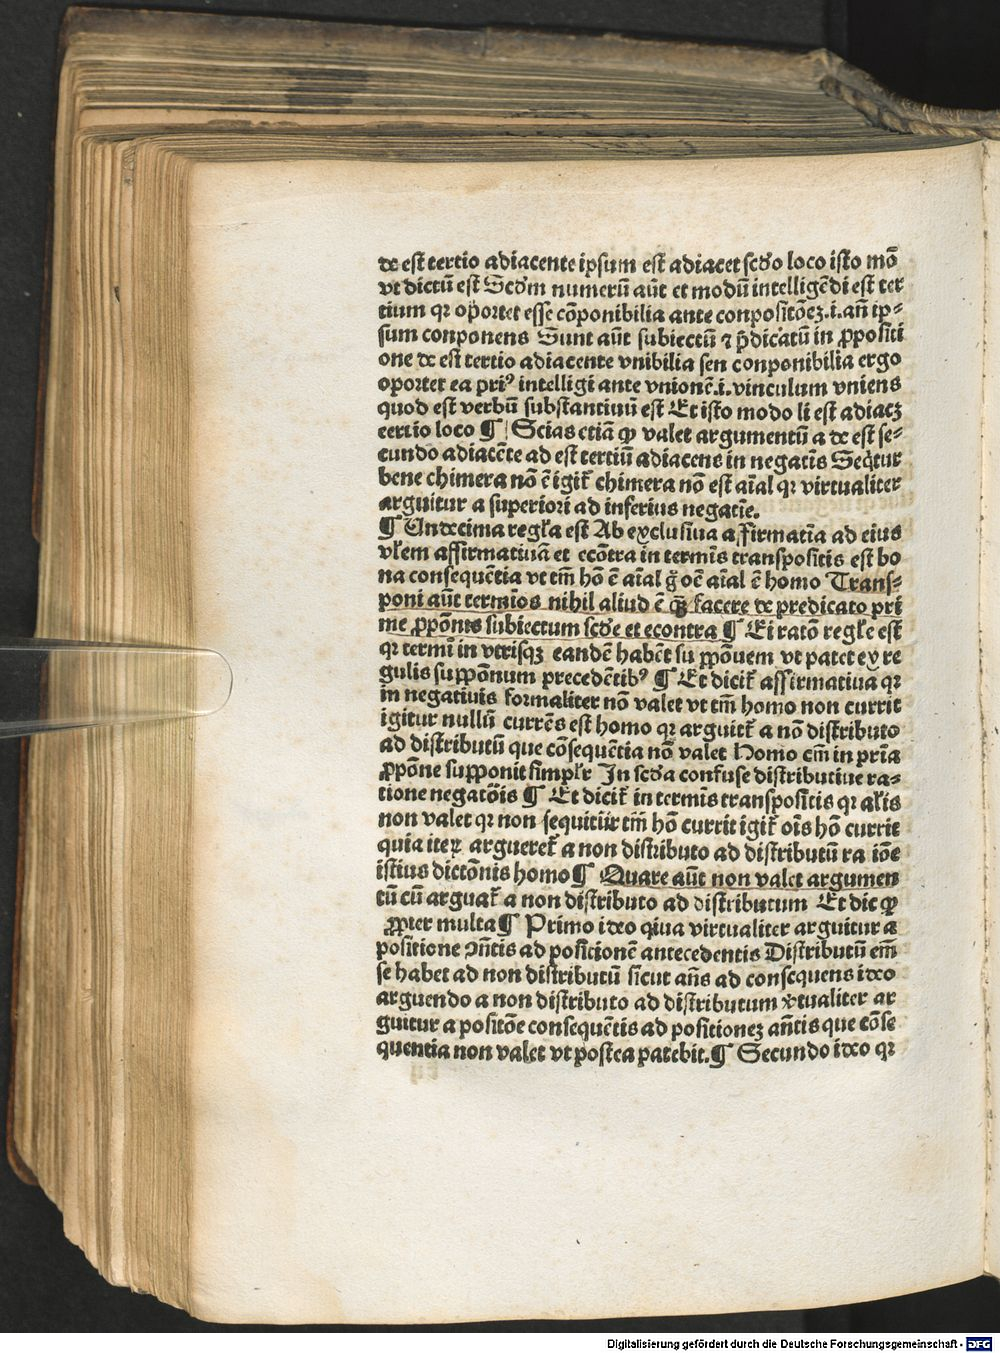 de est tertio adiacente ipsum est adiacēt scďo loco isto mō
vt dictū est Scďm numerū aūt et modū intelligēdi est ter
tium qꝛ oportet esse cōponibilia ante conpositōeꝫ.i.añ ip⸗
sum conponens Sunt aūt subiectū ⁊ p̄dicatū in ꝓpositi
one de est tertio adiacente vnibilia seu conponibilia ergo
oportet ea priꝰ intelligi ante vnionē.i.vinculum vniens
quod est verbū substantiuū est Et isto modo li est adiacꝫ
tertio loco ¶ Scias etiā ꝙ valet argumentū a de est se⸗
cundo adiacēte ad est tertiū adiacens in negatīs Seqͥtur
bene chimera nō ē igit̄ chimera nō est aīal qꝛ virtualiter
arguitur a superiori ad inferius negatīe.
¶ Undecima regl̄a est Ab exclusiua affirmatīa ad eius
vl̄em affirmatiuā et ecōtra in termīs transpositis est bo
na consequētia vt tm̄ hō ē aīal g̊ oē aīal ē homo Trans⸗
poni aūt termīos nihil aliud ē qꝫ facere de predicato pri
me ꝓpōnis subiectum scďe et econtra ¶ Et ratō regl̄e est
qꝛ termī in vtrisqꝫ eandē habēt suppōnem vt patet ex re
gulis suppōnum precedētibꝰ ¶ Et dicit̄ affirmatiua qꝛ
in negatiuis formaliter nō valet vt tm̄ homo non currit
igitur nullū currēs est homo qꝛ arguit̄ a nō distributo
ad distributū que cōsequētia nō valet Homo em̄ in prīa
ꝓpōne supponit simpl̄r In scďa confuse distributiue ra⸗
tione negatōis ¶ Et dicit̄ in termīs transpositis qꝛ al̄is
non valet qꝛ non sequitur tm̄ hō currit igit̄ oīs hō currit
quia iteꝝ argueret̄ a non distributo ad distributū ra iōe
istius dictōnis homo ¶ Quare aūt non valet argumen
tū cū arguat̄ a non distributo ad distributum Et dic ꝙ
ꝓpter multa ¶ Primo ideo qiua virtualiter arguitur a
positione ꝯn̄tis ad positionē antecedentis Distributū em̄
se habet ad non distributū sicut añs ad consequens ideo
arguendo a non distributo ad distributum v̓tualiter ar
guitur a positōe consequētis ad positioneꝫ añtis que cōse
quentia non valet vt postea patebit.¶ Secundo ideo qꝛ
Digitalisierung gefördert durch die Deutsche Forschungsgemeinschaft - DFG